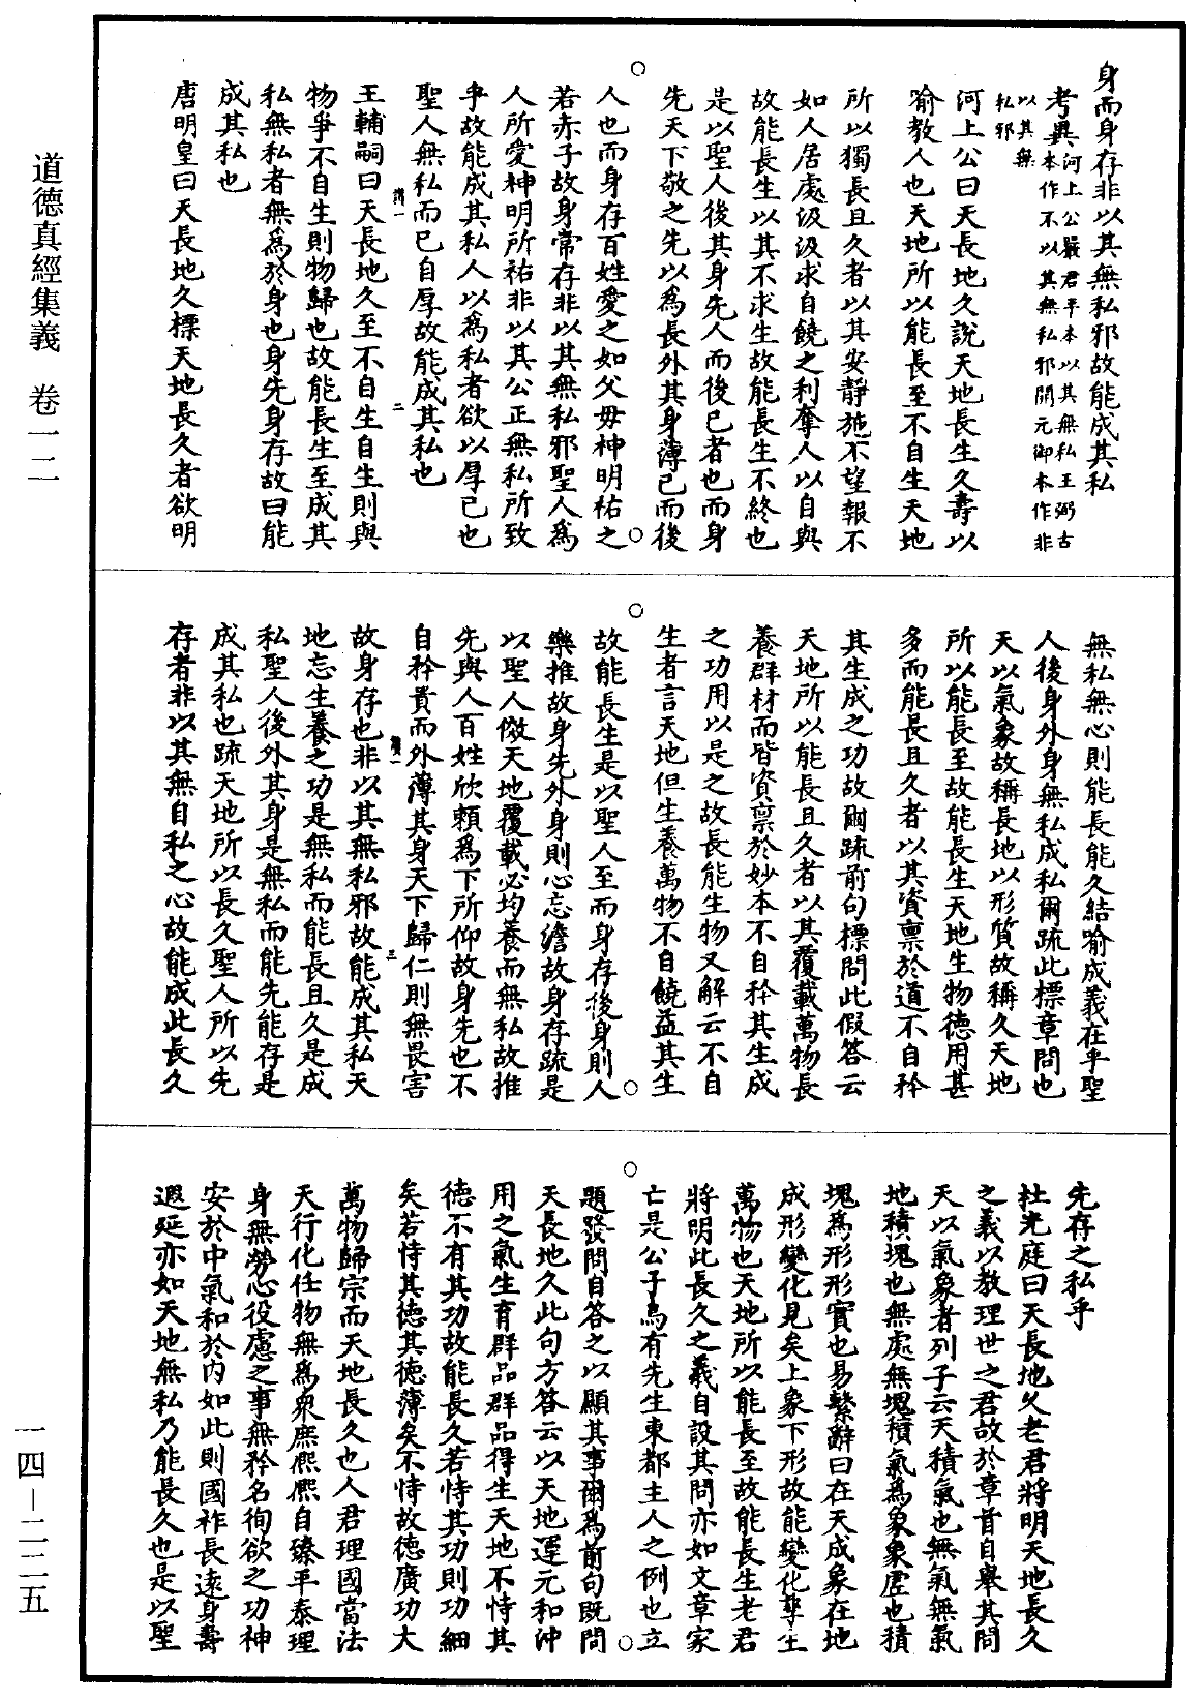 道德真經集義　卷一二
一四—二二五
身而身存非以其無私邪故能成其私
考異河上公嚴君平本以其無私王弼古
本作不以其無私邪開元御本作非
以其無
私邪
河上公曰天長地久說天地長生久壽以
喻教人也天地所以能長至不自生天地
所以獨長且久者以其安靜施不望報不
如人居處汲汲求自饒之利奪人以自與
故能長生以其不求生故能長生不終也
是以聖人後其身先人而後己者也而身
先天下敬之先以爲長外其身薄己而後
人也而身存百姓愛之如父母神明祐之
若赤子故身常存非以其無私邪聖人爲
人所愛神明所祐非以其公正無私所致
乎故能成其私人以爲私者欲以厚己也
聖人無私而己自厚故能成其私也
王輔嗣曰天長地久至不自生自生則與
物爭不自生則物歸也故能長生至成其
私無私者無爲於身也身先身存故曰能
成其私也
唐明皇曰天長地久標天地長久者欲明
無私無心則能長能久結喻成義在乎聖
人後身外身無私成私爾疏此標章問也
天以氣象故稱長地以形質故稱久天地
所以能長至故能長生天地生物德用甚
多而能長且久者以其資稟於道不自矜
其生成之功故爾疏前句標問此假答云
天地所以能長且久者以其覆載萬物長
養群材而皆資稟於妙本不自矜其生成
之功用以是之故長能生物又解云不自
生者言天地但生養萬物不自饒益其生
故能長生是以聖人至而身存後身則人
樂推故身先外身則心忘澹故身存疏是
以聖人傚天地覆載必均養而無私故推
先與人百姓欣賴爲下所仰故身先也不
自矜貴而外薄其身天下歸仁則無畏害
故身存也非以其無私邪故能成其私天
地忘生養之功是無私而能長且久是成
私聖人後外其身是無私而能先能存是
成其私也疏天地所以長久聖人所以先
存者非以其無自私之心故能成此長久
先存之私乎
杜光庭曰天長地久老君將明天地長久
之義以教理世之君故於章首自舉其問
天以氣象者列子云天積氣也無氣無氣
地積塊也無處無塊積氣爲象象虛也積
塊爲形形實也易繫辭曰在天成象在地
成形變化見矣上象下形故能變化孳生
萬物也天地所以能長至故能長生老君
將明此長久之義自設其問亦如文章家
亡是公子烏有先生東都主人之例也立
題發問自答之以顯其事爾爲前句既問
天長地久此句方答云以天地運元和沖
用之氣生育群品群品得生天地不恃其
德不有其功故能長久若恃其功則功細
矣若恃其德其德薄矣不恃故德廣功大
萬物歸宗而天地長久也人君理國當法
天行化任物無爲衆庶熙熙自臻平泰理
身無勞心役慮之事無矜名徇欲之功神
安於中氣和於內如此則國祚長遠身壽
遐延亦如天地無私乃能長久也是以聖